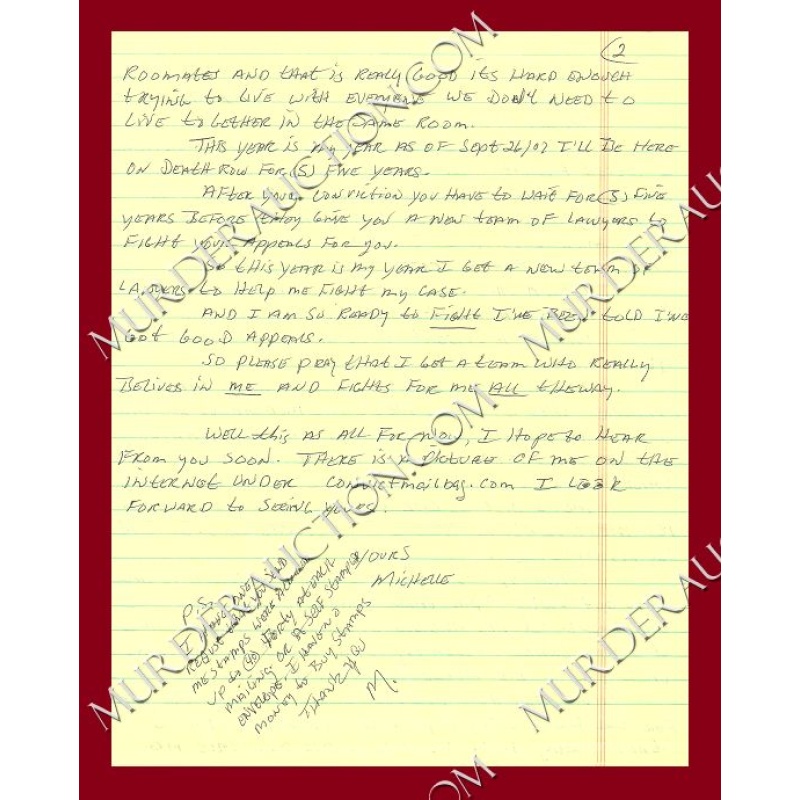 2
ROOMATES AND that is REALLY GOOD its HARD ENOUGH
trying to LIVE WITH EVERYONE WE DON'T NEED to
LIVE toGETHER IN the SAME ROOM.
This YEAR is my YEAR AS OF Sept 26/07 I'LL BE HERE
ON DEATH ROW FOR (5) FIVE YEARS.
AFTER your CONVICTION you HAVE to WAIT FOR (5) FIVE
YEARS BEFORE they GIVE YOU A NEW TEAM OF LAWYERS to
FIGHT your APPEALS FOR you.
SO this YEAR is my YEAR I GET A NEW TEAM OF
LAWYERS to HELP ME FIGHT my CASE.
AND I AM SO READY to FIGHT I'VE BEEN tOLD I'VE
GOT GOOD APPEALS.
SO PLEASE PRAY tHAT I GET A tEAM WHO REALLY
BELIVES IN ME AND FIGHTS FOR ME ALL tHEWAY.
WELL this AS ALL FOR NOW, I HOPE to HEAR
FROM you SOON. THERE IS A PICTURE OF ME ON tHE
INTERNET UNDER CONVICtmailbag.com I LOOK
FORWARD to SEEING YOURS.
YOURS
MICHELLE
P.S.
I HAVE ONE
REQUEST
ME STAMPS WERE ALLOWED
UP to (40) FORTY AT EACH
MAILING OR A SELF STAMPED
ENVELOPE. I HAVE NO
MONEY to BUY STAMPS
THANK YOU
M.
MURDERAUCTION.COM